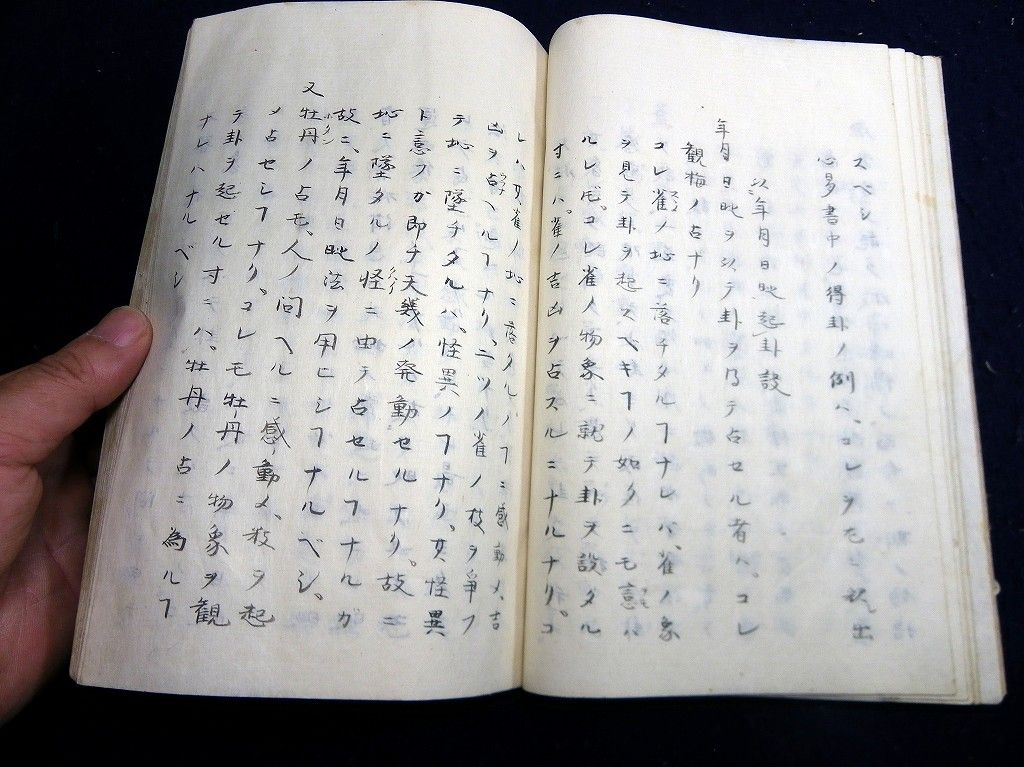 スベシ
心易書中ノ得卦ノ例ハ、コレヲモ出
以年月日時起卦設
年月日時ヲ以テ卦ヲ乃テ占セル者ハ。コレ
観梅ノ占ナリ
コレ雀ノ地ニ落チタルフナレバ、雀ノ象
ヲ見テ卦ヲ起スベキフノ如クニモ意ハ
ルレ𪜈。コレ雀ノ物象ニ就テ卦ヲ設タル
寸ニハ。雀ノ吉凶ヲ占スルニナルナリ。コ
レハ其雀ノ地ニ落タルノフニ感動メ、吉
凶ヲ占ヘルフナリ、二ツノ雀ノ枝ヲ争フ
テ地ニ墜チタルハ、怪異ノフナリ。其怪異
ト意フガ即チ天幾ノ発動セルナリ。故ニ
地ニ墜タルノ怪ニ由テ占セルフナルガ
故ニ、年月日時法ヲ用ヒシフナルベシ、
又牡丹ノ占モ、人ノ問ヘルニ感動メ、数ヲ起
メ占セシフナリ、コレモ牡丹ノ物象ヲ観
テ卦ヲ起ゼル寸ニハ。牡丹ノ占ニ為ルフ
ナレハナルベシ